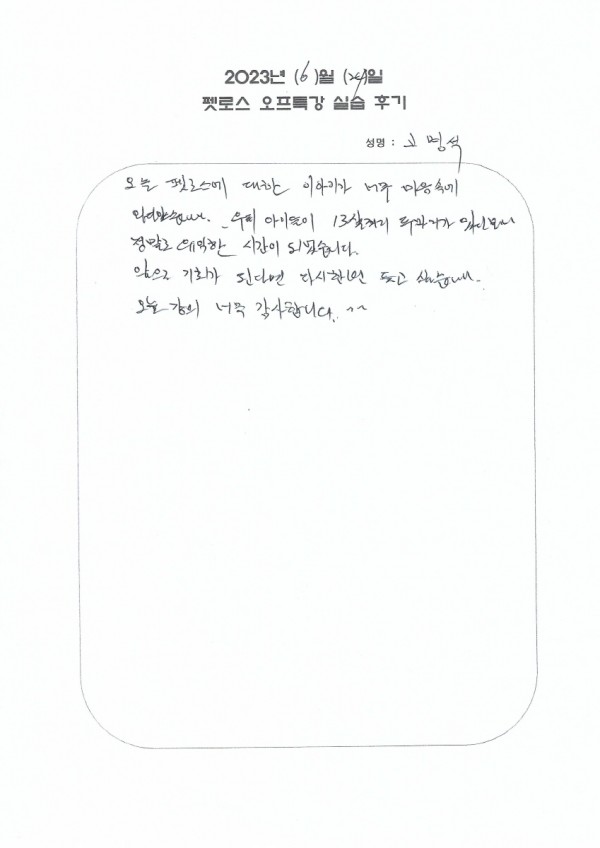 2023년 (6)월 (24)일
펫로스 오프특강 실습 후기
성명 : 고명석
오늘 펫로스에 대한 이야기가 너무 마음속에
와닿았습니다. 우리 아이들이 13살짜리 두마리가 있다보니
정말로 유익한 시간이 되었습니다.
앞으로 기회가 된다면 다시한번 듣고 싶습니다.
오늘 강의 너무 감사합니다. ^^